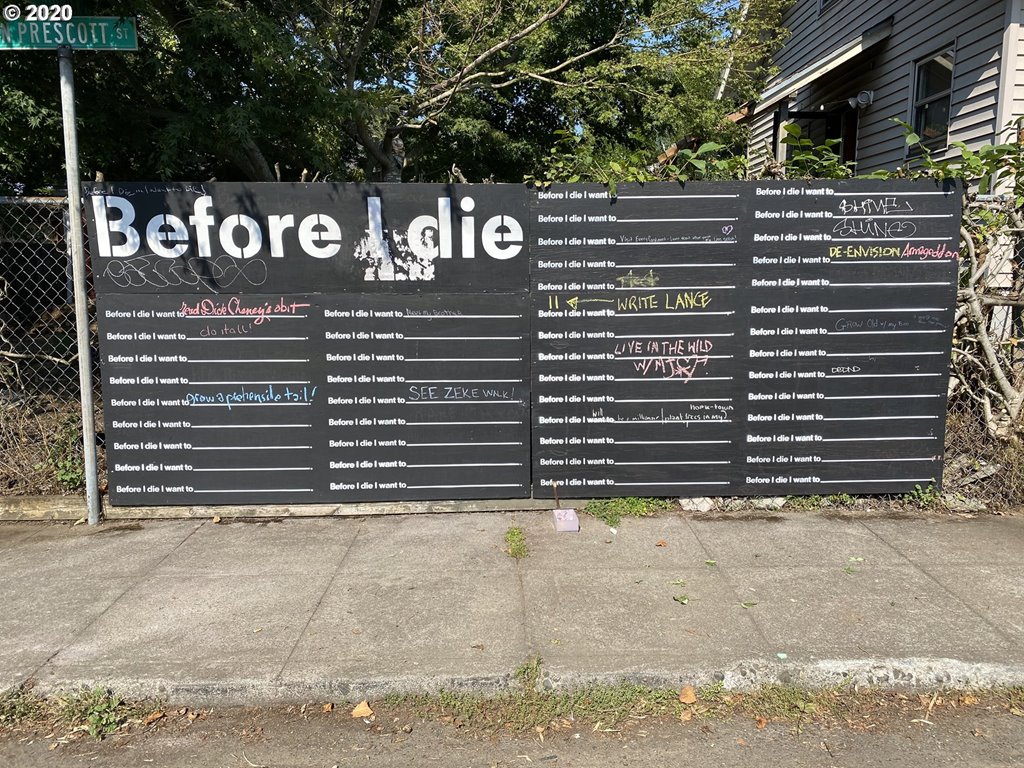 © 2020
N PRESCOTT ST
Before I die
Before I die I want to read Dick Cheney's obit
Before I die I want to do it all!
Before I die I want to
Before I die I want to
Before I die I want to grow a prehensile tail!
Before I die I want to
Before I die I want to
Before I die I want to
Before I die I want to
Before I die I want to
Before I die I want to
Before I die I want to
Before I die I want to
Before I die I want to SEE ZEKE WALK!
Before I die I want to
Before I die I want to
Before I die I want to
Before I die I want to
Before I die I want to
Before I die I want to
Before I die I want to
Before I die I want to
Before I die I want to WRITE LANCE
Before I die I want to
Before I die I want to LIVE IN THE WILD
W/
Before I die I want to
Before I die I want to
will home-town
Before I die I want to be a millionare/plant trees in my
Before I die I want to
Before I die I want to
Before I die I want to
Before I die I want to
Before I die I want to SHINE
Before I die I want to
Before I die I want to DE-ENVISION Armageddon
Before I die I want to
Before I die I want to
Before I die I want to Grow Old w/ my
Before I die I want to
Before I die I want to
Before I die I want to
Before I die I want to
Before I die I want to
Before I die I want to
Before I die I want to